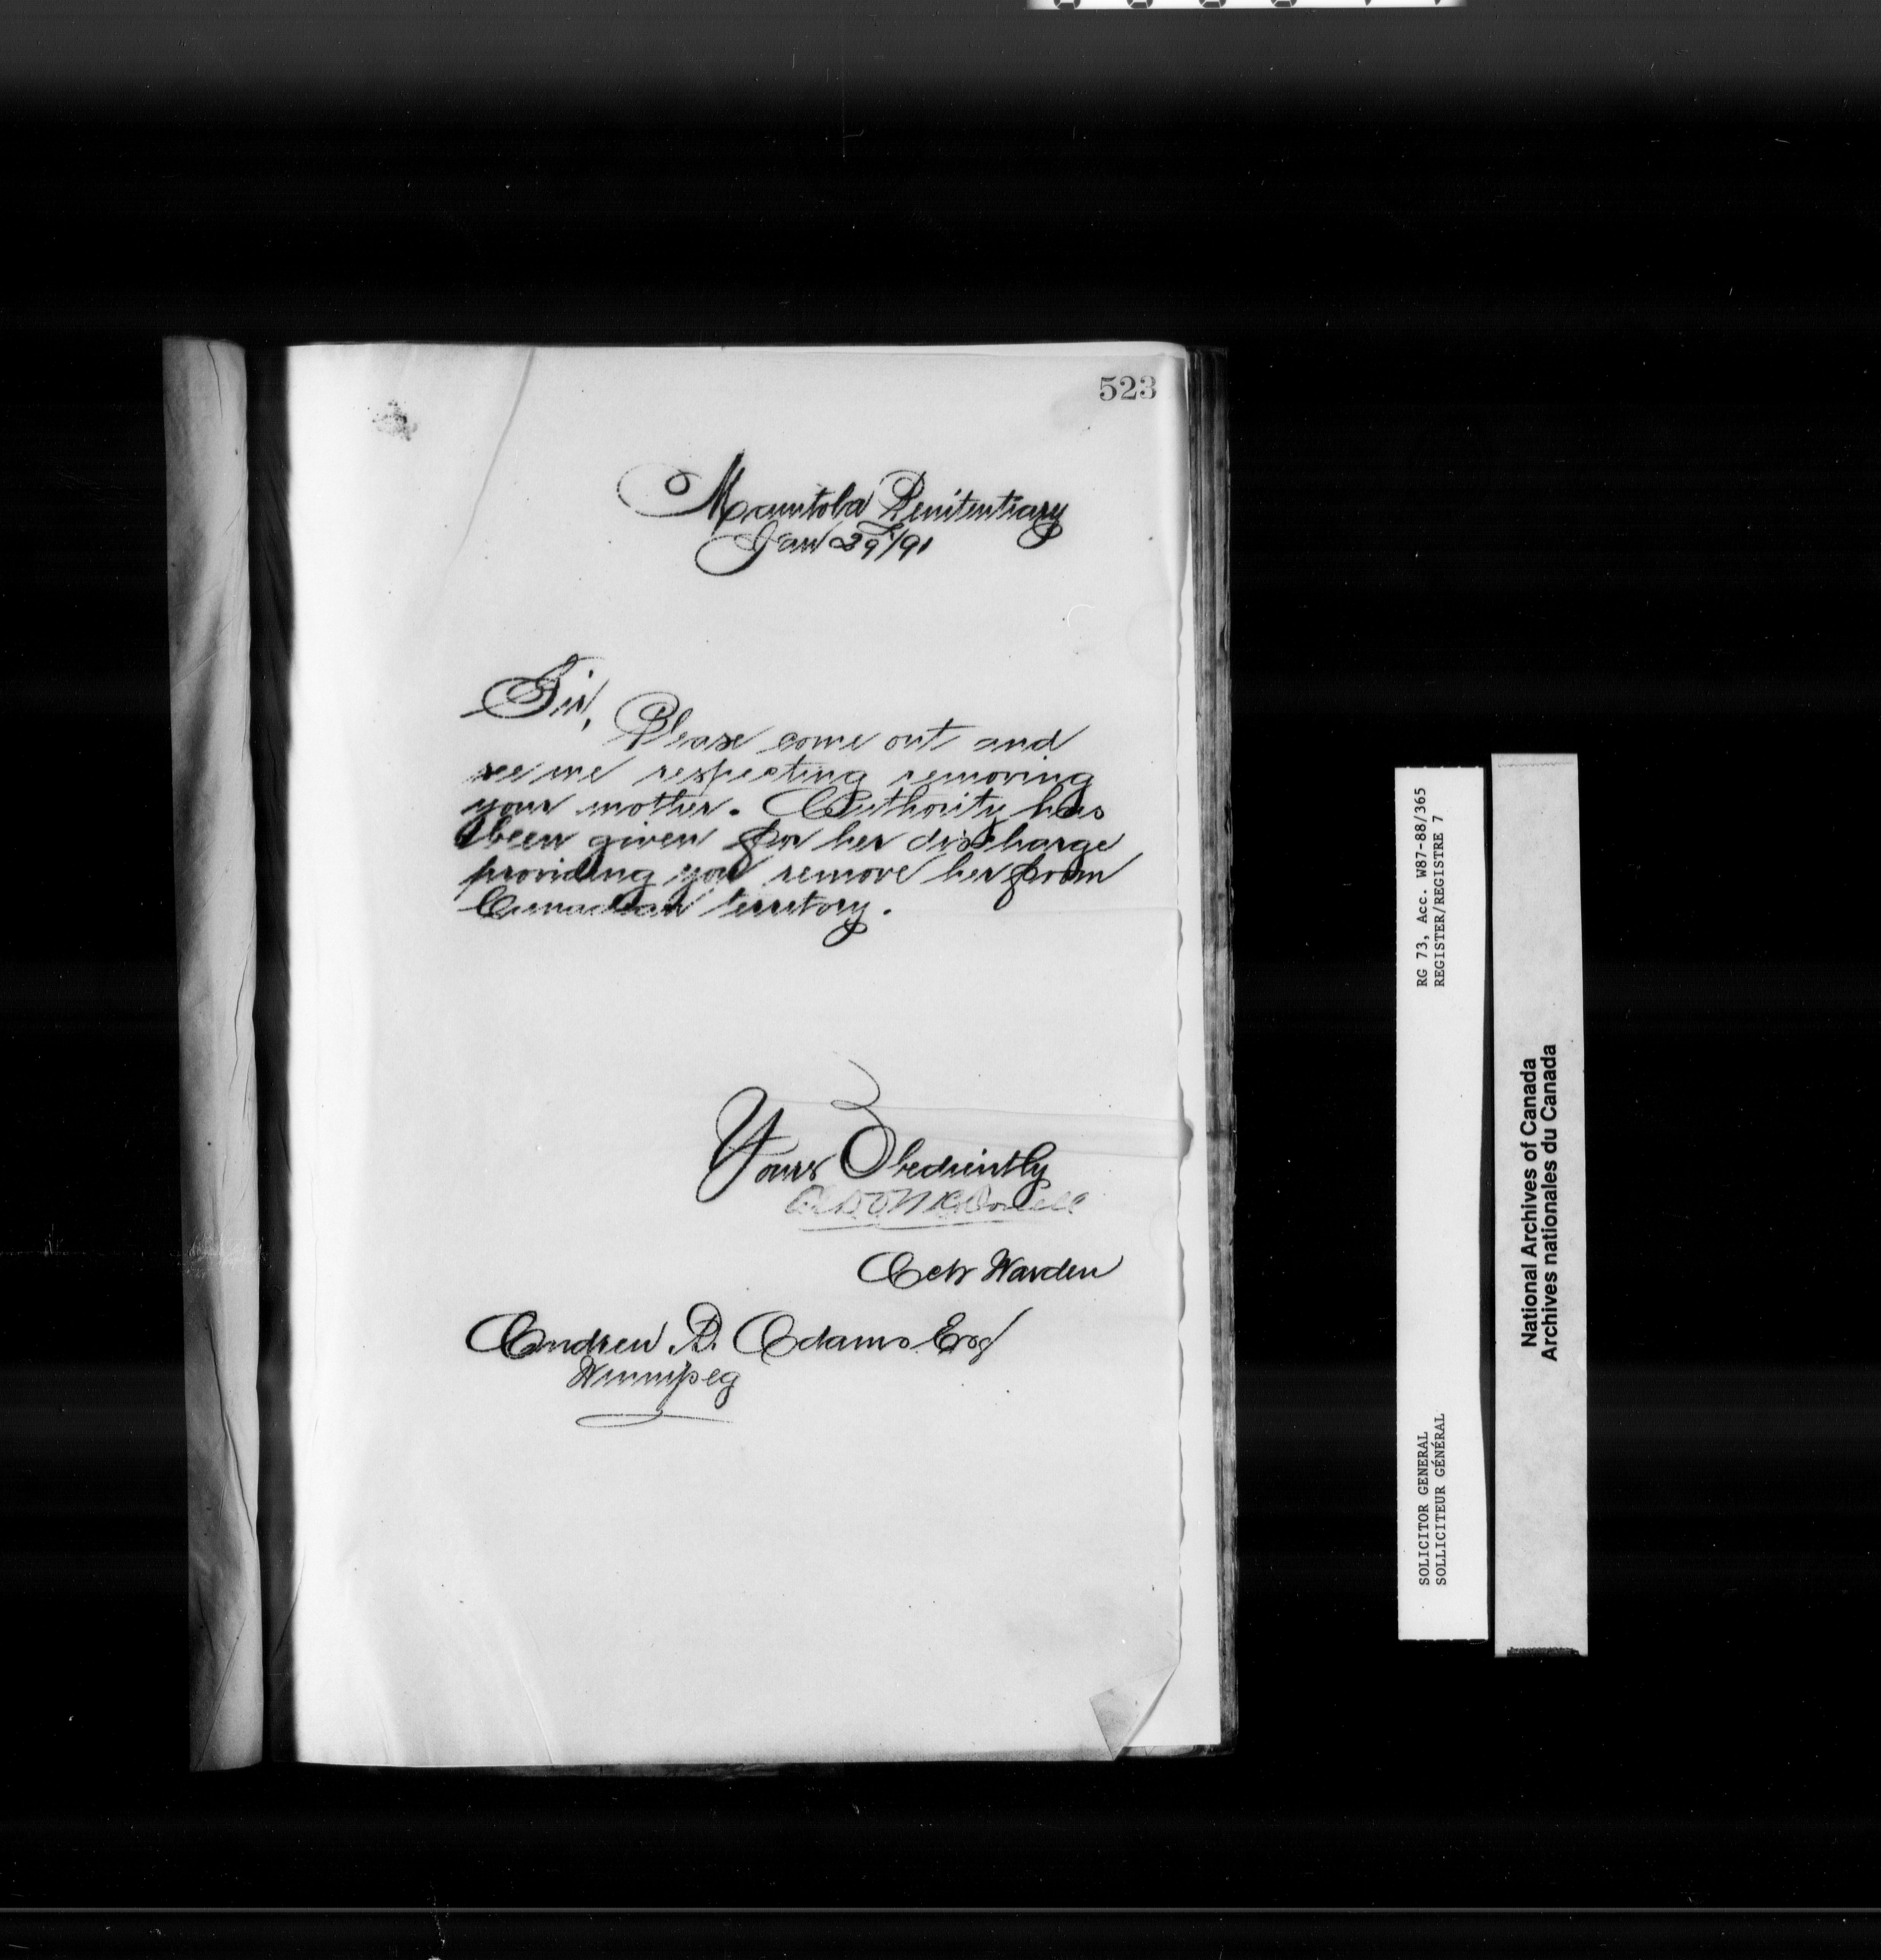 523
Manitoba Penitentiary
Jan 29/91
Sir,
Please come out and
see me respecting removing
your mother. Authority has
been given for her discharge
providing you remove her from
Canadian territory.
Yours Obediently
Actr Warden
Andrew D. Adams Esq
Winnipeg
RG 73, Acc. W87-88/365
REGISTER/REGISTRE 7
SOLICITOR GENERAL
SOLLICITEUR GÉNÉRAL
National Archives of Canada
Archives nationales du Canada